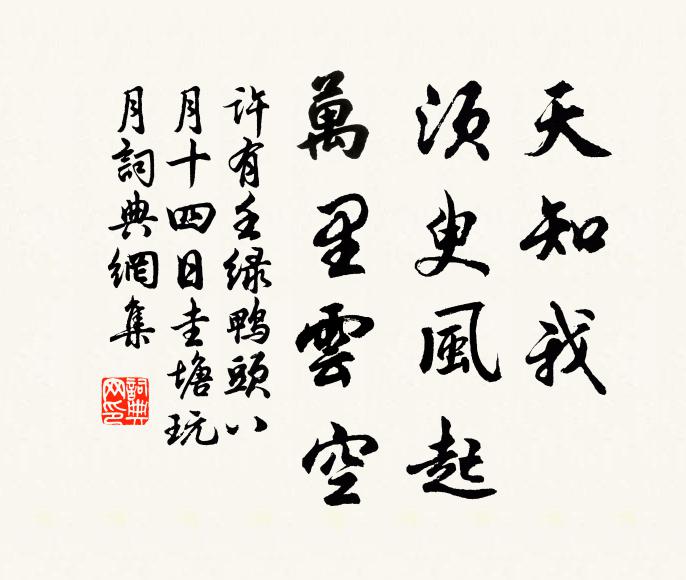 天知我
須臾風起
萬里雲空
許有壬綠鴨頭八
月十四日圭塘玩
月詞典網集
詞典網印